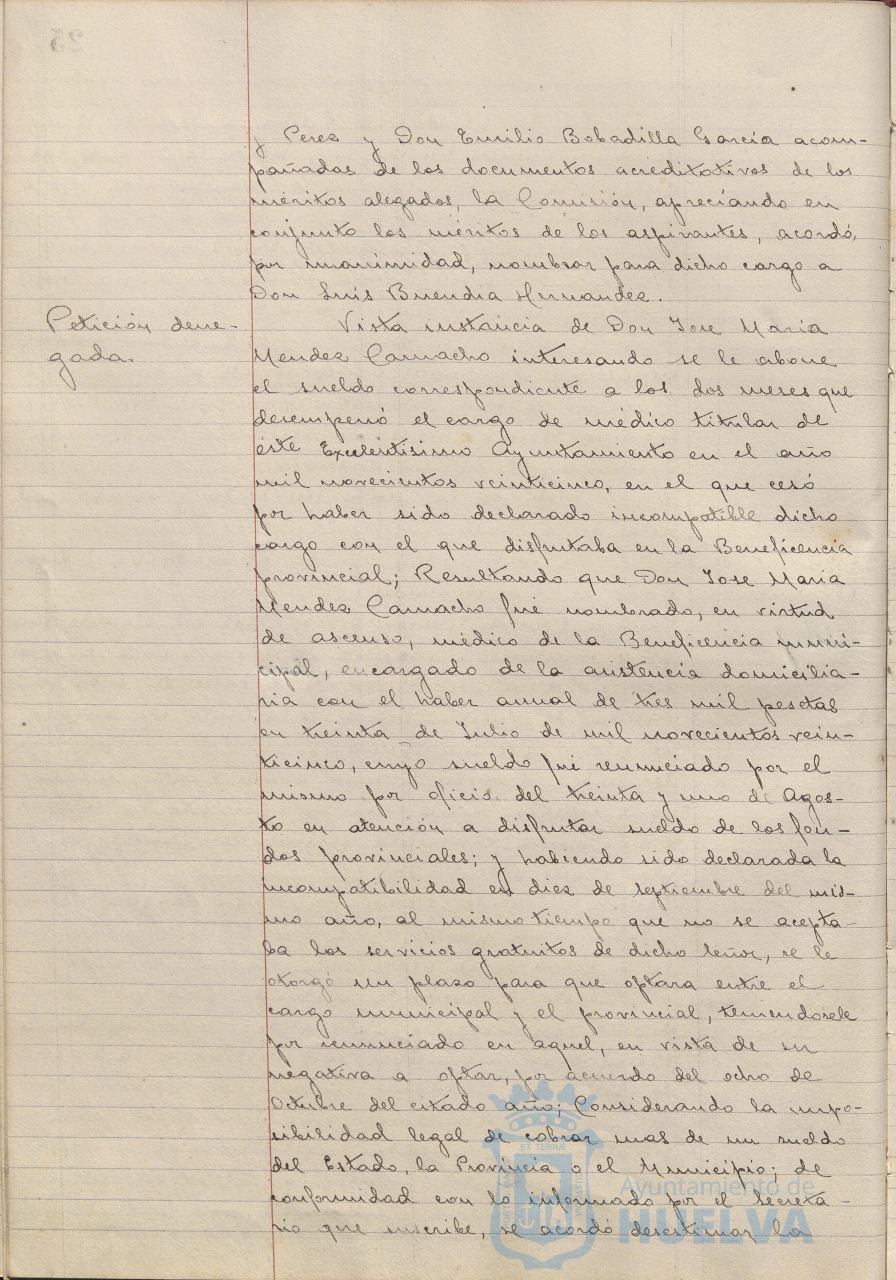 y Perez y Don Emilio Bobadilla García acom-
pañadas de los documentos acreditativos de los
méritos alegados, la Comisión, apreciando en
conjunto los méritos de los aspirantes, acordó,
por unanimidad, nombrar para dicho cargo a
Don Luis Buendia Hernandez.
Petición dene-
gada.
Vista instancia de Don Jose Maria
Mendez Camacho interesando se le abone
el sueldo correspondiente a los dos meses que
desempeñó el cargo de médico titular de
éste Excelentísimo Ayuntamiento en el año
mil novecientos veinticinco, en el que cesó
por haber sido declarado incompatible dicho
cargo con el que disfrutaba en la Beneficencia
provincial; Resultando que Don Jose Maria
Mendez Camacho fué nombrado, en virtud
de ascenso, médico de la Beneficencia muni-
cipal, encargado de la asistencia domicilia-
ria con el haber anual de tres mil pesetas
en treinta de Julio de mil novecientos vein-
ticinco, cuyo sueldo fué renunciado por el
mismo por oficio del treinta y uno de Agos-
to en atención a disfrutar sueldo de los fon-
dos provinciales; y habiendo sido declarada la
incompatibilidad en diez de septiembre del mis-
mo año, al mismo tiempo que no se acepta-
ba los servicios gratuitos de dicho señor, se le
otorgó un plazo para que optara entre el
cargo municipal y el provincial, teniendosele
por renunciado en aquel, en vista de su
negativa a optar, por acuerdo del ocho de
Octubre del citado año; Considerando la impo-
sibilidad legal de cobrar mas de un sueldo
del Estado, la Provincia o el Municipio; de
conformidad con lo informado por el Secreta-
rio que suscribe, se acordó desestimar la
Ayuntamiento de
HUELVA